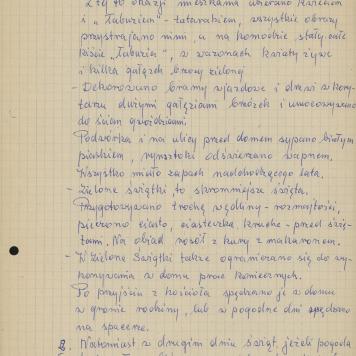 Z tej to okazji mieszkania ubierano kwieciem
i „Tabuziem" - tatarakiem, wszystkie obrazy
przystrajano nimi, a na komodzie stały całe
kiście „Tabuzia", w wazonach kwiaty żywe
i kilka gałązek brzozy zielonej
- Dekorowano bramy wjazdowe i drzwi w kory-
tarzu dużymi gałęziami brzózek i umocowywano
do ścian gwoździami
Podwórka i na ulicy przed domem sypano białym
piaskiem, rynsztoki odświeżano wapnem.
Wszystko miało zapach nadchodzącego lata.
- Zielone Świątki to skromniejsze święta.
Przygotowywano trochę wędliny - rozmaitości,
pieczono ciasto, ciasteczka kruche - przed świę-
tami. Na obiad rosół z kury z makaronem.
- W Zielone Świątki także ograniczano się do wy-
konywania w domu prac koniecznych.
Po przyjściu z kościoła spędzano je w domu
w gronie rodziny, lub w pogodne dni spędzano
na spacerze.
2. Natomiast w drugim dniu świąt, jeżeli pogoda